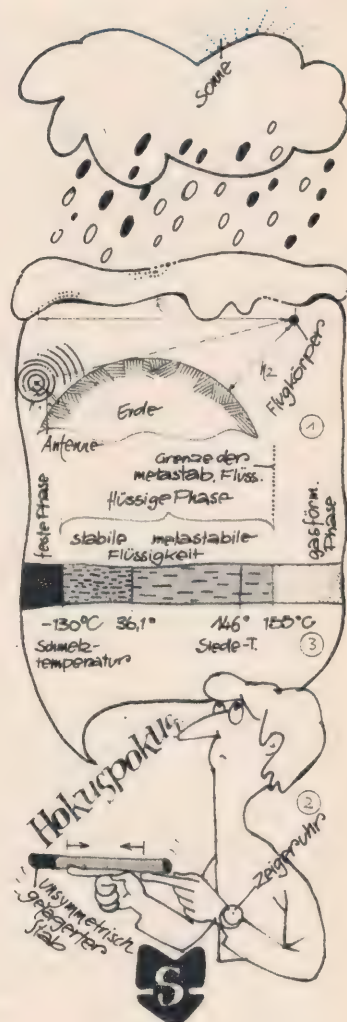 Sonne
h2
Flugkörper
Erde
Antenne
1
Grenze der
metastab. Flüss.
flüssige Phase
feste Phase
gasförm.
Phase
stabile metastabile
Flüssigkeit
-130°C 36,1° 146° 155°C
Schmelz-
temperatur
Siede-T.
3
Hokuspokus
2
Zeigeruhr
unsymmetrisch
gelagerter
Stab
S